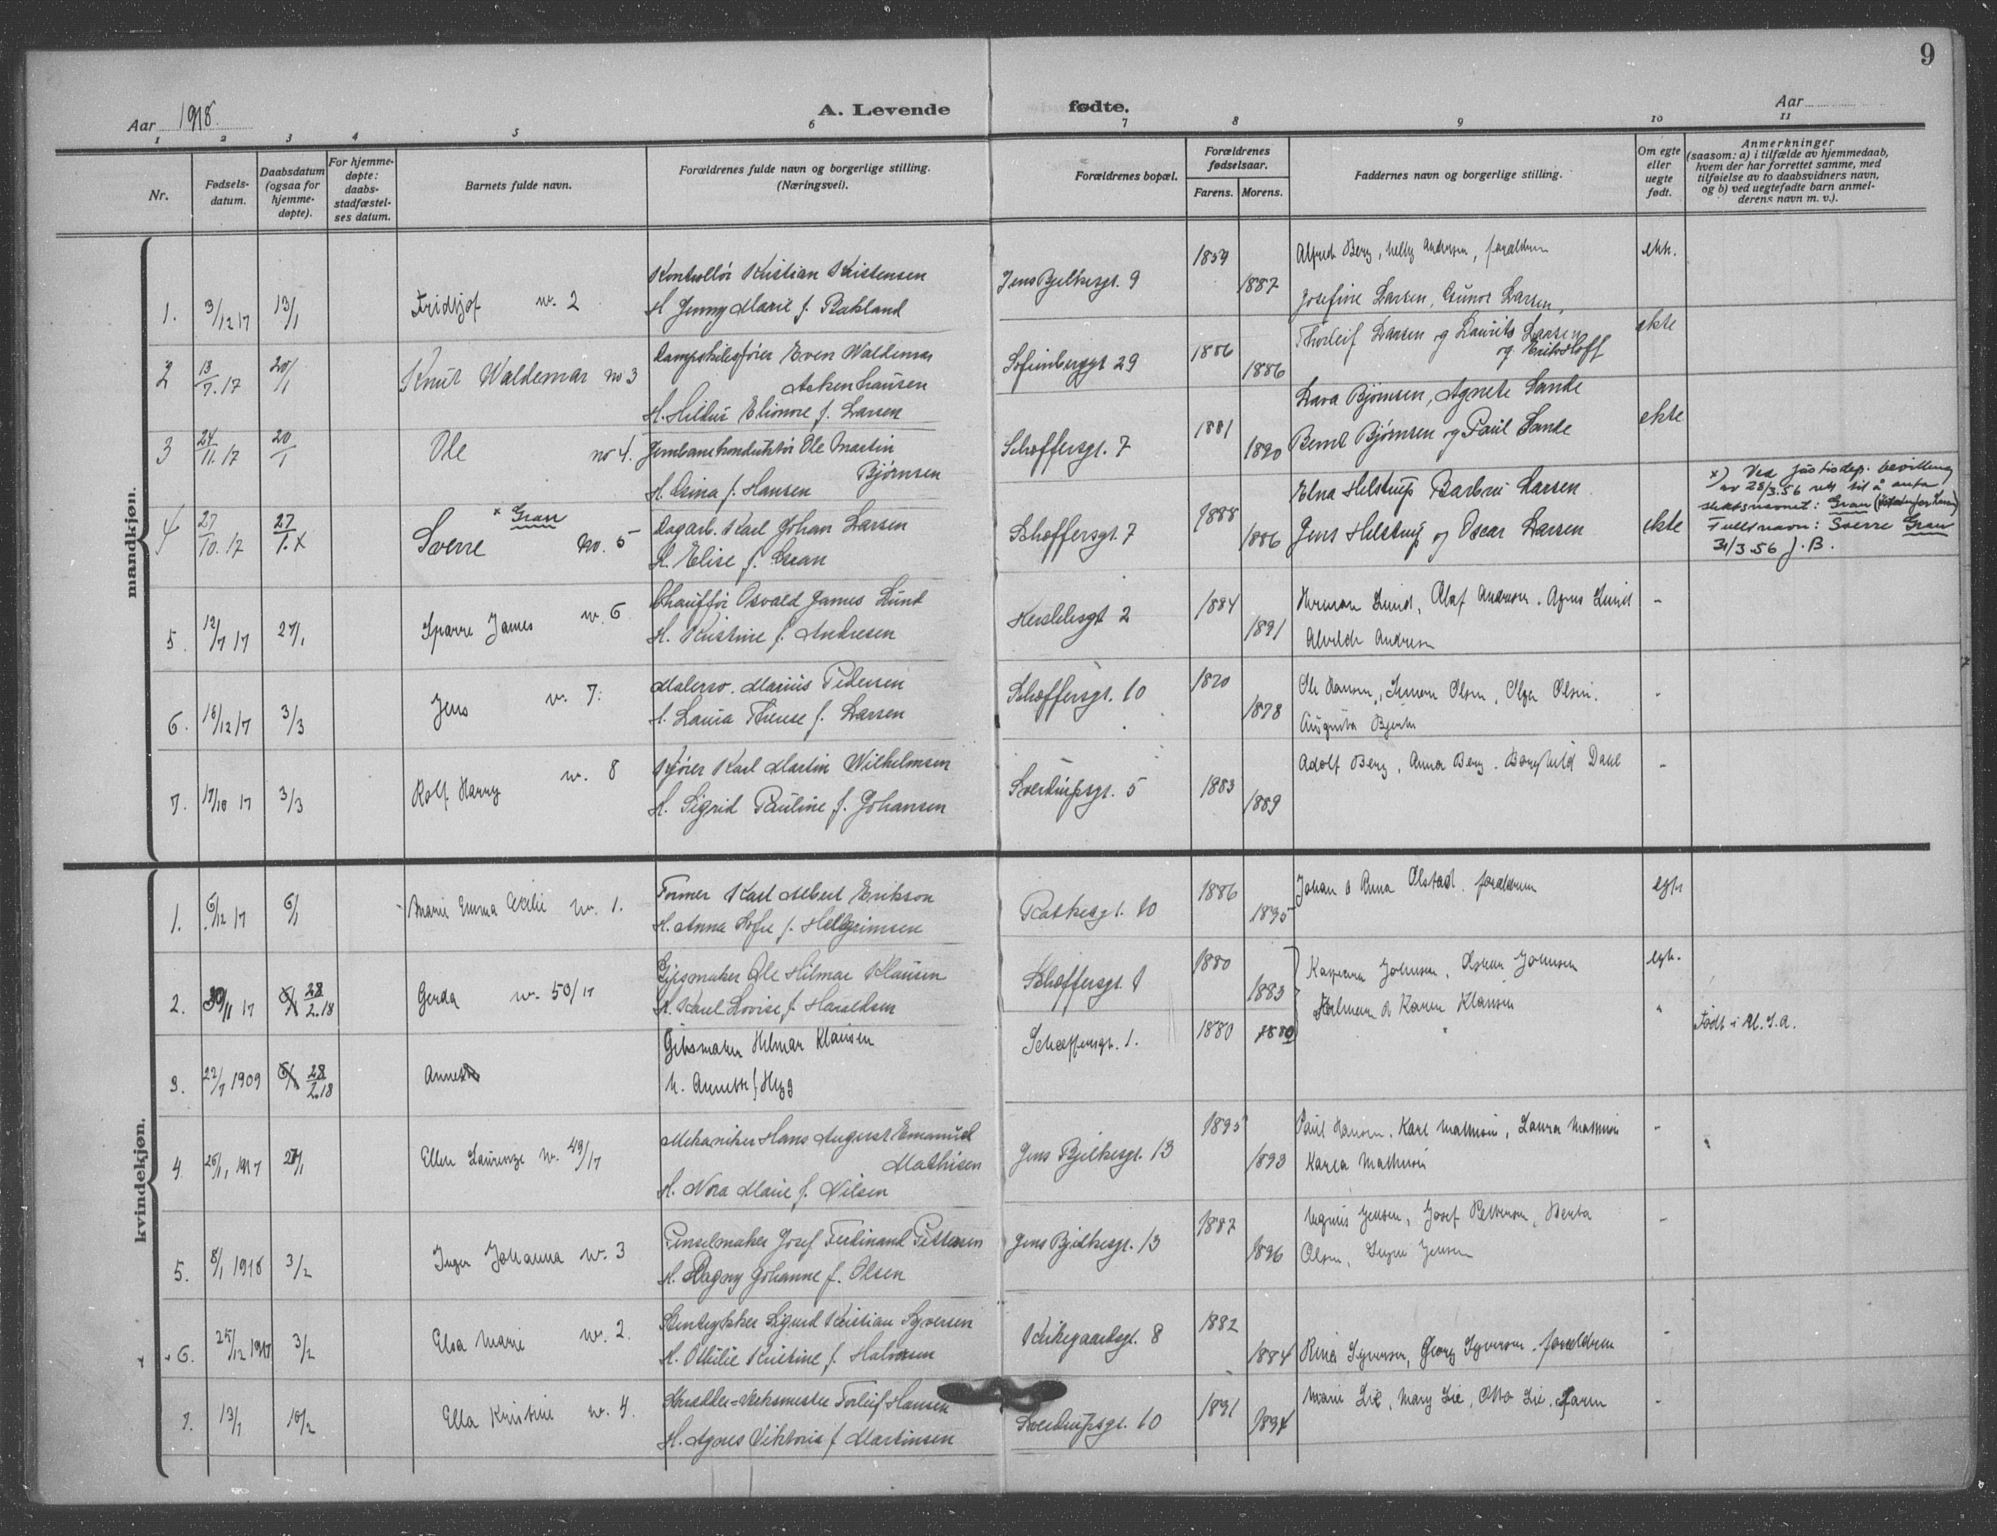 9
Aar 1918.
A. Levende fødte.
Aar
1 2 3 4 5 6 7 8 9 10 11
Nr.
Fødsels-
datum.
Daabsdatum
(ogsaa for
hjemme-
døpte).
For hjemme-
døpte:
daabs-
stadfæstel-
ses datum.
Barnets fulde navn.
Forældrenes fulde navn og borgerlige stilling.
(Næringsvei).
Forældrenes bopæl.
Forældrenes
fødselsaar.
Farens. Morens.
Faddernes navn og borgerlige stilling.
Om egte
eller
uegte
født.
Anmerkninger
(saasom: a) i tilfælde av hjemmedaab,
hvem der har forrettet samme, med
tilføielse av to daabsvidners navn,
og b) ved uegtefødte barn anmel-
derens navn m. v.).
mandkjøn.
1. 3/12 17 13/1 Fridtjof nr. 2
Kontrollør Kristian Kristensen
H. Jenny Marie f. Rakland
Jens Bjelkesgt. 9
1887
Alfred Berg, Nelly Andersen, forældrene
Josefine Larsen, Gunor Larsen,
2 13/7. 17 20/1 Knut Waldemar no 3
Dampskibsfører Even Waldemar
Askenhausen
H. Hildur Elionore f. Larsen
Sofienberggt 29
1886 1886
Thorleif Larsen og Laurits Larsen
ekte
3 24/11. 17 20/1 Ole no 4.
Jernbanekonduktør Ole Martin
Bjørnsen
H. Dina f. Hansen
Schæffersgt. 7
1881 1890
Lara Bjørnsen, Agnete Sande
Bernt Bjørnsen og Paul Sande
ekte
4 27/10. 17 27/1. x Sverre x Gran no. 5
Dagarb. Karl Johan Larsen
H. Elise f. Gran
Schæffersgt. 7
1888 1886
Elna Helstrup Barbra Larsen
Jens Helstrup og Oscar Larsen
ekte
x) Ved Justisdep. bevilling
av 28/3.56 rett til å anta
slektsnavnet: Gran (istedenfor Larsen)
Fullt navn: Sverre Gran
31/3.56 J. B.
5. 12/7 17 27/1 Sparre James nr. 6
Chauffør Osvald James Lund
H. Kristine f. Andresen
Herslebsgt 2
1884 1891
Herman Lund, Olaf Andresen, Agnes Lund
Alvilde Andresen
-
6. 16/12 17 3/3 Jens nr. 7.
Malersv. Marius Pedersen
H. Laura Therese f. Larsen
Schæffersgt. 10
1878
Ole Hansen, Simon Olsen, Olga Olsen.
Augusta Bjerke
-
7. 17/10 17 3/3 Rolf Harry nr. 8
Kjører Karl Martin Wilhelmsen
H. Sigrid Pauline f. Johansen
Sverdrupsgt. 5
1883 1889
Adolf Berg, Anna Berg. Borghild Dahl
-
kvindekjøn.
1. 6/12 17 6/1 Marie Emma Cecilie nr. 1.
Former Karl Albert Erikson
H. Anna Sofie f. Hellgrimsen
Rathkesgt. 10
1886 1895
Johan & Anna Ølstad. forældrene
egte
2. 30/11 17 28/2.18 Gerda nr. 50/17
Gipsmaker Ole Hilmar Klausen
H. Karel Lovise f. Haraldsen
Schæffersgt 1
1880 1883
Hilmar & Karen Klausen
egt.
3. 22/7 1909 28/2.18 Anne
Gibsmaker Hilmar Klausen
H. Annette f. Hegg
Schæffersgt. 1.
1880 1880
"
Født i U. S. A.
4. 25/11 1917 27/1 Ellen Laurenze nr. 49/17
Mekaniker Hans August Emanuel
Mathisen
H. Nora Marie f. Nilsen
Jens Bjelkesgt. 13
1895 1893
Paul Hansen, Karl Mathisen, Laura Mathisen
Karen Mathisen
-
5. 8/1 1918 3/2 Inger Johanna nr. 3
Penselmaker Josef Ferdinand Pettersen
H. Dagny Johanne f. Olsen
Jens Bjelkesgt. 13
1887 1896
Magnus Jensen, Josef Pettersen, Herba
Olsen, Signe Jensen
-
6. 25/12 1917 3/2 Elsa Marie nr. 2.
Stentrykker Sigurd Kristian Syversen
H. Othilie Kristine f. Halvorsen
Kirkegaardsgt. 8
1882 1884
Rina Syversen, Georg Syversen, forældrene
-
7. 13/1 10/2 Ella Kristine nr. 4.
Skrædder-Verksmester Torleif Hansen
H. Agnes Viktoria f. Martinsen
Sverdrupsgt. 10
1891 1894
Marie Lie, Mary Lie, Otto Lie, Faren
-